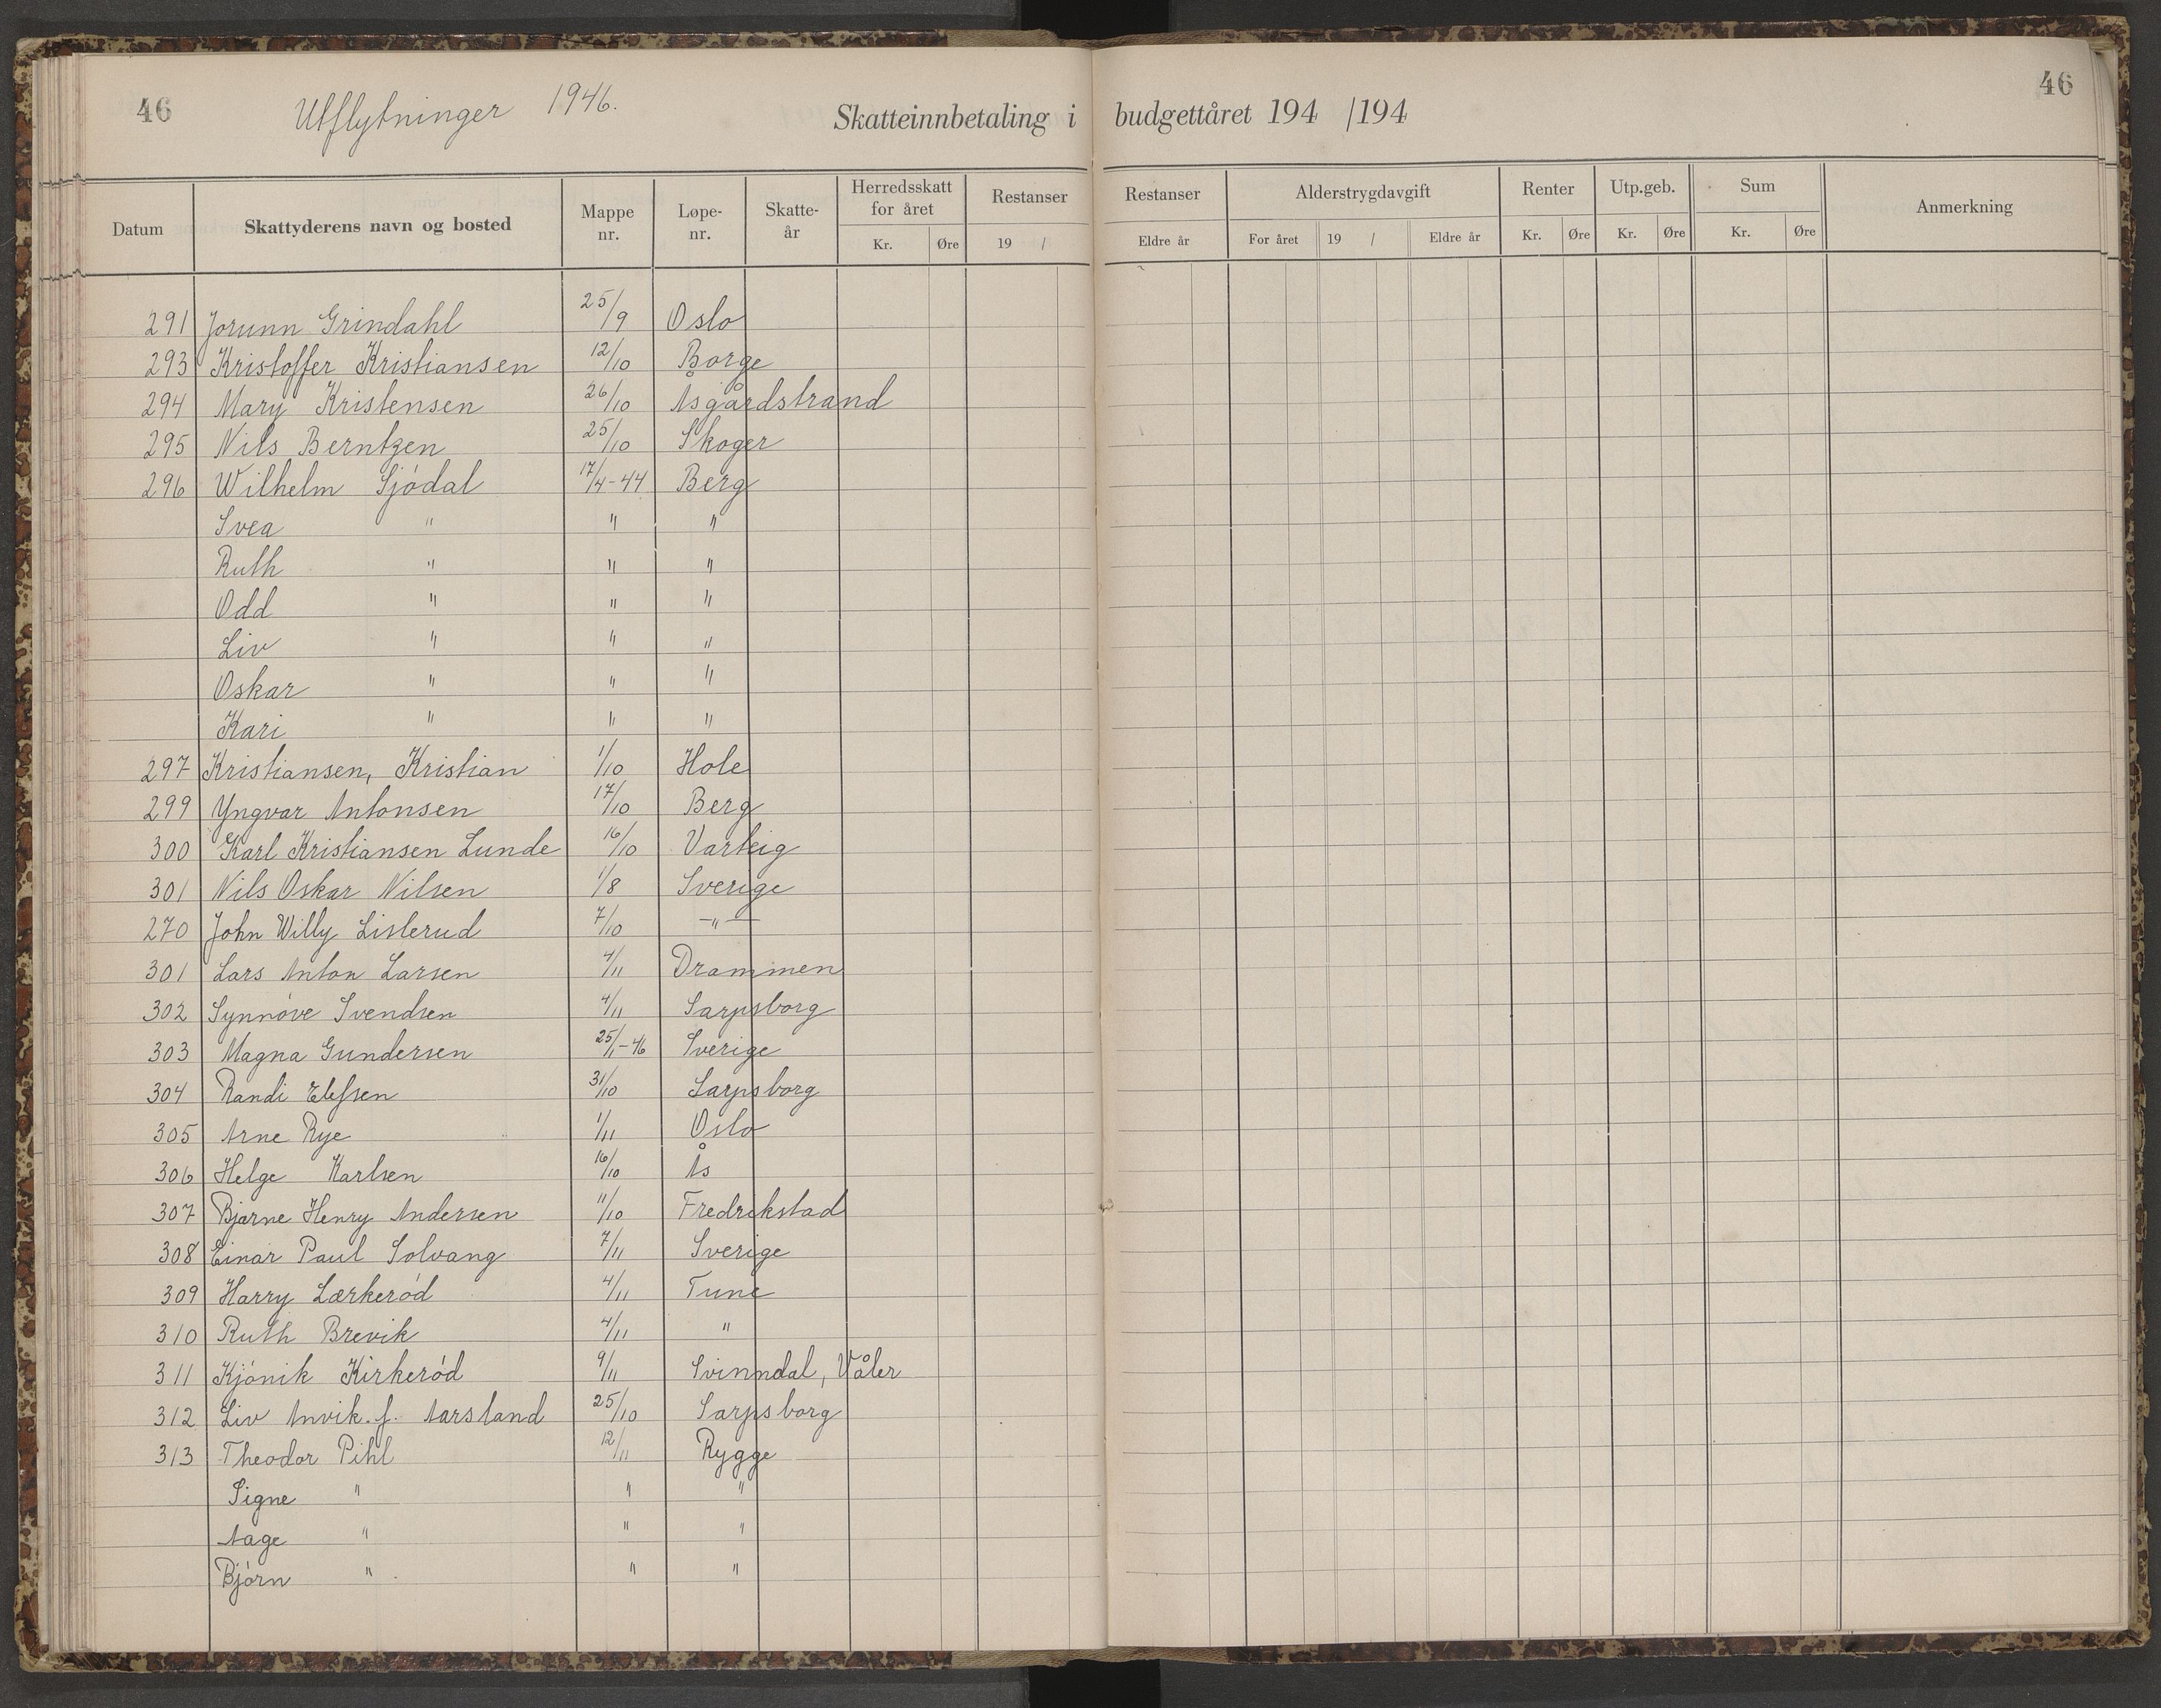 46 Utflytninger 1946. Skatteinnbetaling i budgettåret 194 /194 46
Datum Skattyderens navn og bosted Mappe nr. Løpe-nr. Skatte-år Herredsskatt for året Restanser Restanser Alderstrygdavgift Renter Utp.geb. Sum Anmerkning
Kr. Øre 19 / Eldre år For året 19 / Eldre år Kr. Øre Kr. Øre Kr. Øre
291 Jorunn Grindahl 25/9 Oslo
293 Kristoffer Kristiansen 12/10 Borge
294 Mary Kristensen 26/10 Åsgårdstrand
295 Nils Berntzen 25/10 Skoger
296 Wilhelm Sjödal 17/4-44 Berg
Svea " " "
Ruth " " "
Odd " " "
Liv " " "
Oskar " " "
Kari " " "
297 Kristiansen, Kristian 1/10 Hole
299 Yngvar Antonsen 17/10 Berg
300 Karl Kristiansen Lunde 16/10 Varteig
301 Nils Oskar Nilsen 1/8 Sverige
270 John Willy Lislerud 7/10 -"-
301 Lars Anton Larsen 4/11 Drammen
302 Synnóve Svendsen 4/11 Sarpsborg
303 Magna Gundersen 25/1-46 Sverige
304 Randi Elefsen 31/10 Sarpsborg
305 Arne Rye 1/11 Oslo
306 Helge Karlsen 16/10 Ås
307 Bjarne Henry Andersen 11/10 Fredrikstad
308 Einar Paul Solvang 7/11 Sverige
309 Harry Lærkeród 4/11 Tune
310 Ruth Brevik 4/11 "
311 Kjónik Kirkeród 9/11 Svinndal, Våler
312 Liv Anvik f. Aarsland 25/10 Sarpsborg
313 Theodor Pihl 12/11 Rygge
Signe " " "
Aage " " "
Bjórn " " "